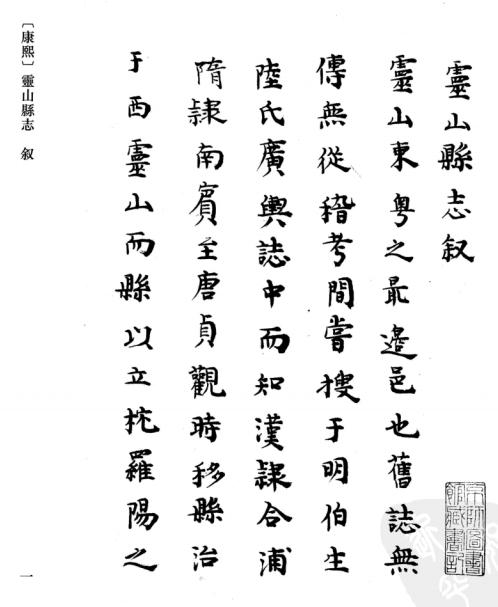 靈山縣志叙
靈山東粤之最邉邑也舊誌無
傳無從稽考間嘗搜于明伯生
陸氏廣輿誌中而知漢隸合浦
隋隸南賓至唐貞觀時移縣治
于西靈山而縣以立枕羅陽之
〔康熙〕靈山縣志 叙
一
京師圖書
館藏書記